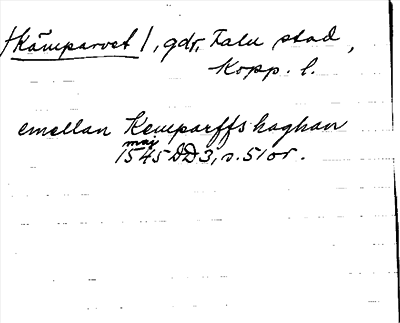 /Kämparvet/, gdr, Falu stad,
Kopp. l.
emellan Kemparffs haghan
maj
1545 DD3, s. 51 or.